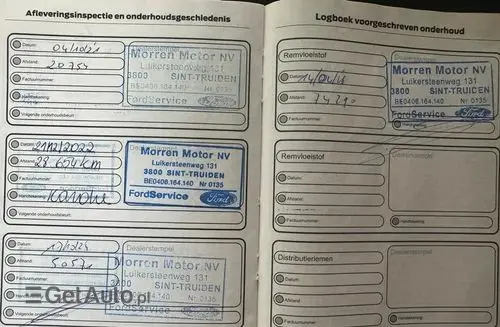 Afleveringsinspectie en onderhoudsgeschiedenis
Datum:
Afstand: 20754
Factuurnummer:
Handtekening:
Volgende onderhoudsbeurt:
Dealerstempel
Morren Motor NV
Luikersteenweg 131
3800 SINT-TRUIDEN
BE0406.164.140 Nr 0135
FordService Ford
Datum: 21/12/2022
Afstand: 28 654 km
Factuurnummer:
Handtekening:
Volgende onderhoudsbeurt:
Morren Motor NV
Luikersteenweg 131
3800 SINT-TRUIDEN
BE0406.164.140 Nr 0135
FordService Ford
Datum:
Afstand:
Factuurnummer:
Handtekening:
Volgende onderhoudsbeurt:
Dealerstempel
Morren Motor NV
Luikersteenweg 131
3800 SINT-TRUIDEN
164.140 Nr 0135
Ford
GetAuto.pl
Logboek voorgeschreven onderhoud
Remvloeistof
Datum:
Afstand:
Factuurnummer:
Handtekening:
Morren Motor NV
Luikersteenweg 131
3800 SINT-TRUIDEN
BE0406.164.140 Nr 0135
FordService Ford
Remvloeistof
Datum:
Afstand:
Factuurnummer:
Dealerstempel
Handtekening:
Distributieriemen
Datum:
Afstand:
Factuurnummer:
Dealerstempel
Handtekening: